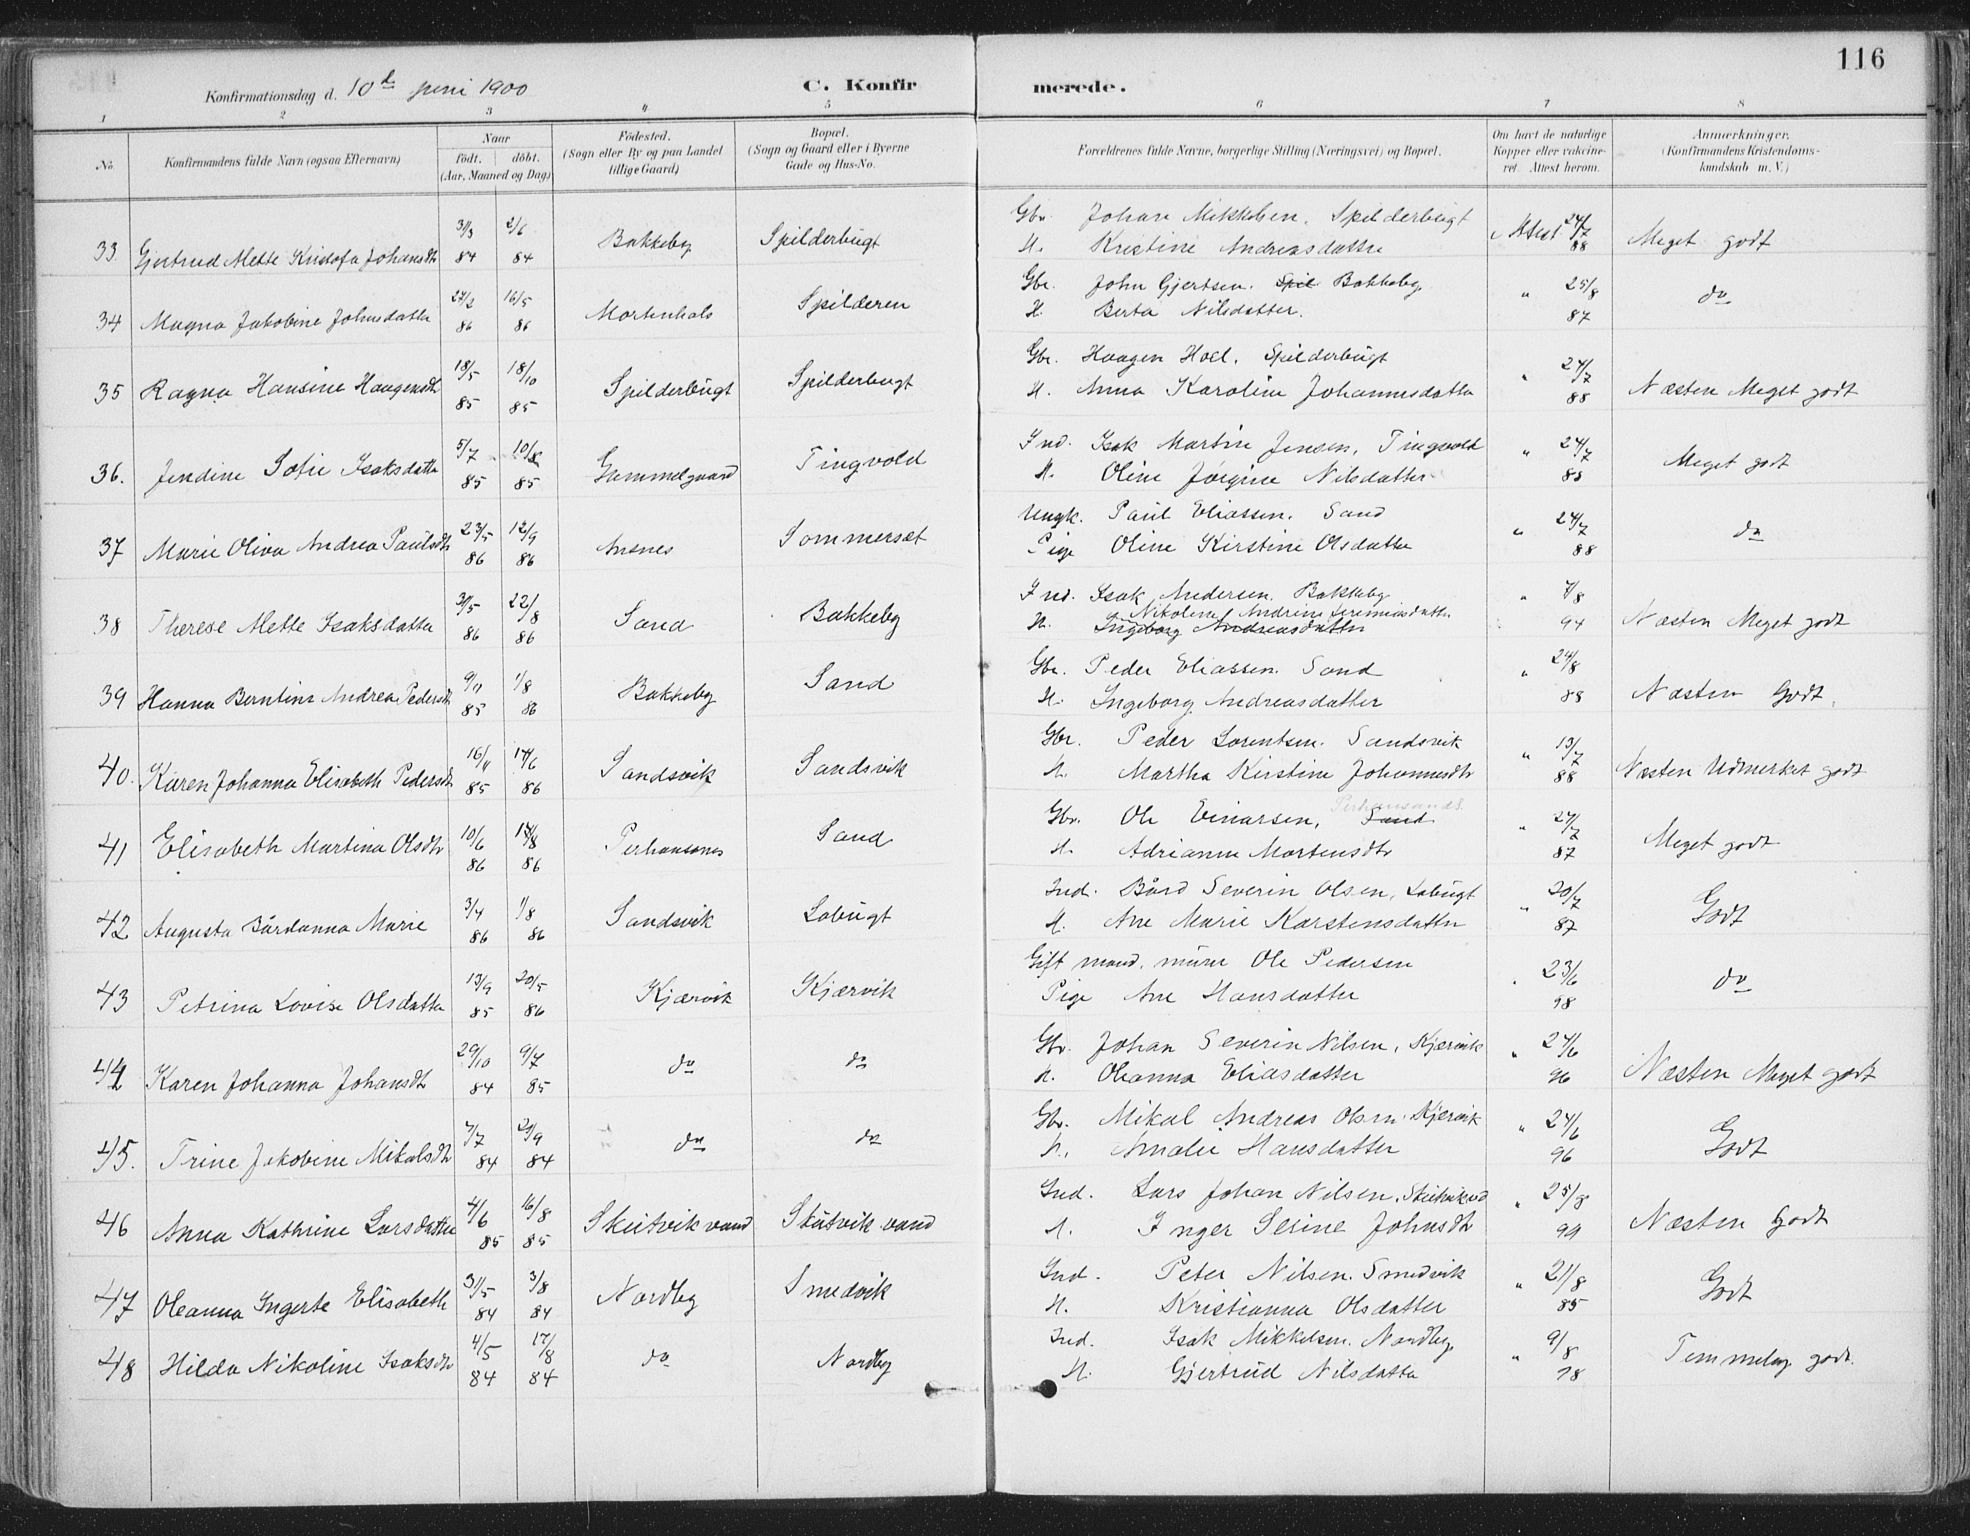 116
Konfirmationsdag d. 10d juni 1900 C. Konfirmerede.
1 2 3 4 5 6 7 8
No. Konfirmandens fulde Navn (ogsaa Efternavn) Naar födt. döbt. (Aar, Maaned og Dag) Födested. (Sogn eller By og paa Landet tillige Gaard) Bopæl. (Sogn og Gaard eller i Byerne Gade og Hus-No. Forældrenes fulde Navne, borgerlige Stilling (Næringsvei) og Bopæl. Om havt de naturlige Kopper eller vakcineret. Attest herom. Anmærkninger. (Konfirmandens Kristendomskundskab m. V.)
33. Gjertrud Mette Kristofa Johansdtr 3/3 84 2/6 84 Bakkeby Spilderbugt Gbr. Johan Mikkelsen. Spilderbugt Attest 24/7 88 Meget godt
H. Kristine Andreasdatter
34 Magna Jakobine Johnsdatter 27/2 86 16/5 86 Mortenhals Spilderen Gbr. John Gjertsen. Spil Bakkeby " 25/8 87 do
H. Berta Nilsdatter.
35 Ragna Hansine Haagensdtr 18/5 85 18/10 85 Spilderbugt Spilderbugt Gbr. Haagen Hoel. Spilderbugt " 24/7 88 Næsten Meget godt
H. Anna Karoline Johannesdatter
36. Jendine Sofie Isaksdatter 5/7 85 10/8 85 Gammelgaard Tingvold Ind. Isak Martin Jensen, Tingvold " 24/7 Meget godt
H. Oline Jørgine Nilsdatter
37 Marie Oliva Andrea Paulsdtr 23/5 86 12/9 86 Ansnes Sommerset Ungk. Paul Eliassen. Sand " 24/7 88 do
Pige Oline Kirstine Olsdatter
38 Therese Mette Isaksdatter 31/5 86 22/8 86 Sand Bakkeby Ind. Isak Andersen. Bakkeby " 7/8 94 Næsten Meget godt
Nikoline Andrine Jeremiasdatter
H. Ingeborg Andreasdatter
39 Hanna Berntine Andrea Pedersdtr 9/11 85 1/8 86 Bakkeby Sand Gbr. Peder Eliassen. Sand " 24/8 88 Næsten Godt.
H. Ingeborg Andreasdatter
40. Karen Johanna Elisabeth Pedersdtr 16/11 85 14/6 86 Sandsvik Sandsvik Gbr. Peder Lorentsen. Sandsvik " 13/7 88 Næsten Udmerket godt
H. Martha Kirstine Johannesdtr
41 Elisabeth Martina Olsdtr 10/6 86 14/8 86 Perhansnes Sand Gbr. Ole Einarsen, Sand " 24/7 87 Meget godt
H. Adrianna Mortensdtr
42 Augusta Bårdanna Marie 3/4 86 1/8 86 Sandsvik Løbugt Ind. Bård Severin Olsen, Løbugt " 20/7 87 Godt
H. Ane Marie Karstensdatter
43 Petrina Lovise Olsdatter 13/9 85 20/5 86 Kjærvik Kjærvik Gift mand, murer Ole Pedersen " 23/6 98 do
Pige Ane Hansdatter
44 Karen Johanna Johansdtr 29/10 84 9/7 85 do do Gbr. Johan Severin Nilsen, Kjærvik " 24/6 96 Næsten Meget godt
H. Oleanna Eliasdatter
45. Trine Jakobine Mikalsdtr 7/7 84 21/9 84 do do Gbr. Mikal Andreas Olsen. Kjærvik " 24/6 96 Godt
H. Amalie Hansdatter
46 Anna Kathrine Larsdatter 4/6 85 16/8 85 Skutvikvand Skutvikvand Ind. Lars Johan Nilsen. Skutvikvd " 25/8 99 Næsten Godt
H. Inger Serine Johnsdtr
47 Oleanna Ingerte Elisabeth 31/5 84 3/8 84 Nordby Smedvik Ind. Peter Nilsen. Smedvik " 21/8 85 Godt
H. Kristianna Olsdatter
48 Hilda Nikoline Isaksdtr 4/5 84 17/8 84 do Nordby Ind. Isak Mikkelsen. Nordby " 9/8 98 Temmelig godt.
H. Gjertrud Nilsdatter